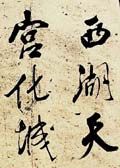 西湖天
宫化城